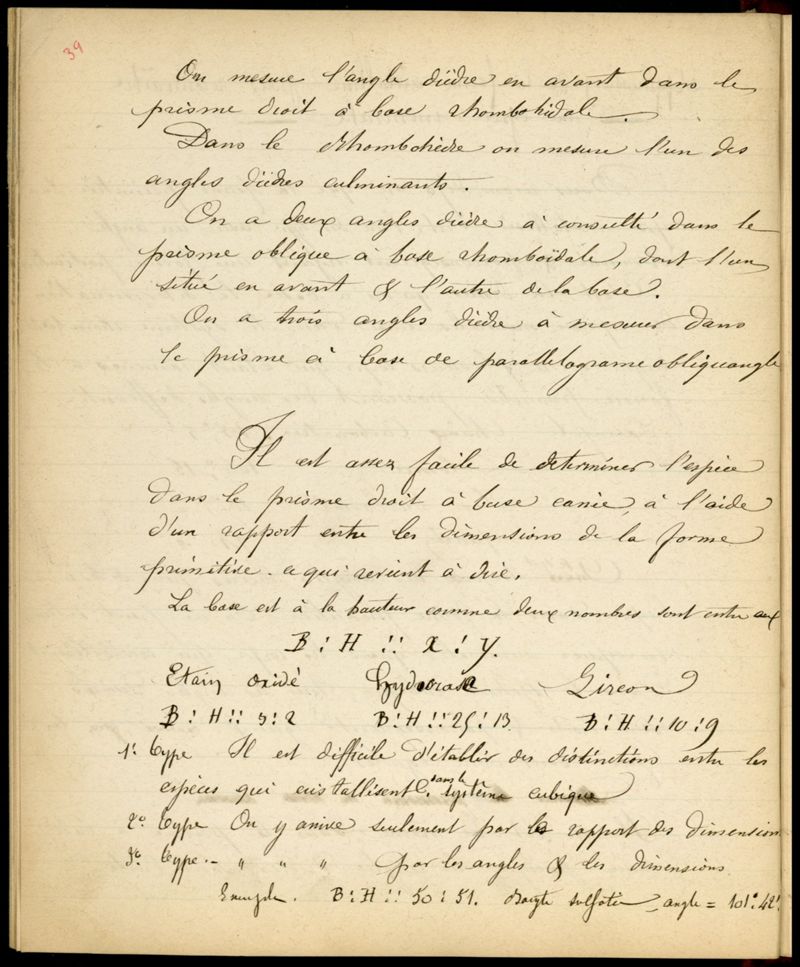 39
On mesure l'angle dièdre en avant dans le
prisme droit à base rhomboïdale.
Dans le rhomboèdre on mesure l'un des
angles dièdres culminants.
On a deux angles dièdre à consulté dans le
prisme oblique à base rhomboïdale, dont l'un
situé en avant & l'autre de la base.
On a trois angles dièdre à mesurer dans
le prisme à base de parallelograme obliquangle
Il est assez facile de determiner l'espèce
dans le prisme droit à base carrée, à l'aide
d'un rapport entre les dimensions de la forme
primitive. ce qui revient à dire.
La base est à la hauteur comme deux nombres sont entre eux
B : H :: X : Y.
Etain oxidé Zircon
B : H :: 3 : 2 B : H :: 25 : 13 B : H :: 10 : 9
1e. type Il est difficile d'établir des distinctions entre les
espèces qui cristallisent dans le système cubique
2e. type On y arrive seulement par le rapport des dimension
3e. type. - " " " par les angles & les dimensions
Exemple. B : H :: 50 : 51. Baryte sulfatée, angle = 101°: 42'.